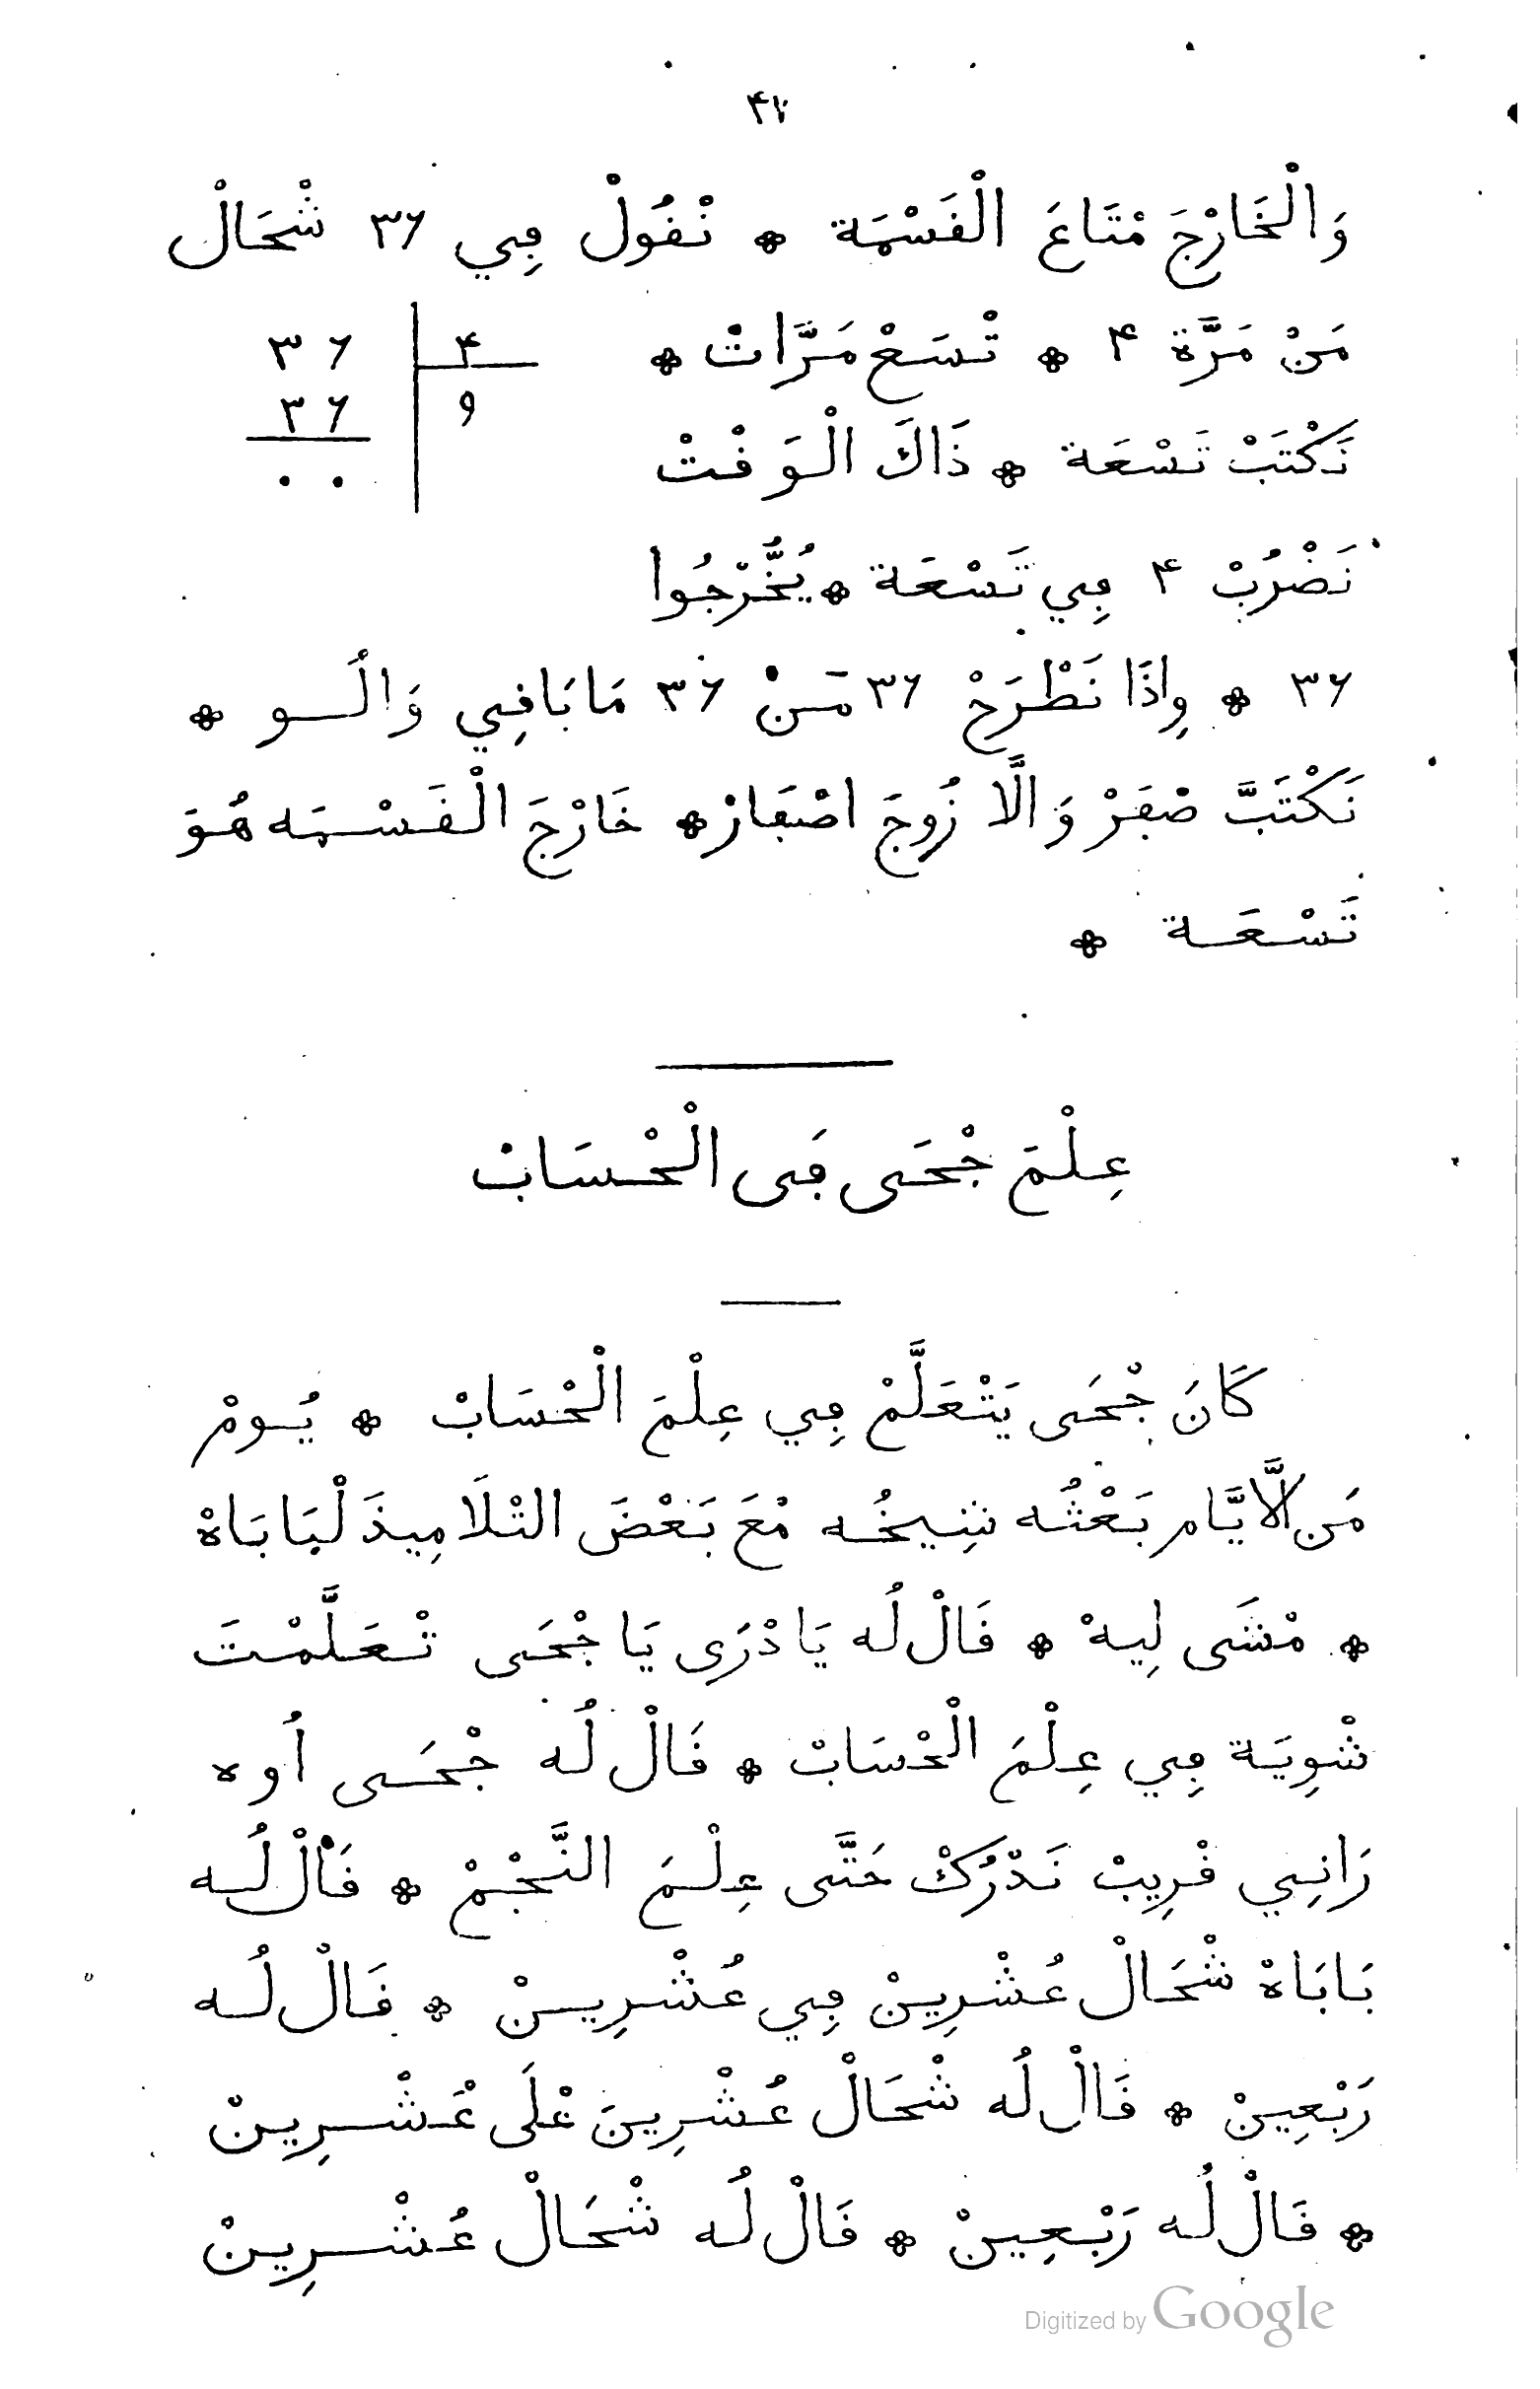 ۴۷
وَالْخَارْجَ مْتَاعَ الْقَسْمَة * نْقُولْ فِي ۳۶ شْحَالْ
مَنْ مَرَّة ۴ * تْسَعْ مَرَّاتْ *
۳۶ | ۴
نَكْتَبْ تَسْعَة * ذَاكَ الْوَقْتْ
۳۶ | ۹
۰۰
نَضْرُبْ ۴ فِي تَسْعَة * يُخَّرْجُوا
۳۶ * وِإذَا نَطْرَحْ ۳۶ مَنْ ۳۶ مَا بَاقِي وَالُـو *
نَكْتَبَّ صْفَرْ وَالَّا زُوجَ اصْفَارْ * خَارْجَ الْقَسْمَه هُوَ
تَسْعَة *
عِلْمَ جْحَى فَى الْحْسَابْ
كَانَ جْحَى يَتْعَلَّمْ فِي عِلْمَ الْحْسَابْ * يُومْ
مَن الَّايَّام بَعْثُه شِيخُه مْعَ بَعْضَ التْلَامِيذَ لْبَابَاهْ
* مْشَى لِيهْ * قَالْ لُه يَا دْرَى يَا جْحَى تْعَلَّمْتَ
شْوِيَة فِي عِلْمَ الْحْسَابْ * قَالْ لُه جْحَى أُوه
رَانِي قْرِيبْ نَدْرُكْ حَتَّى عِلْمَ النَّجْمْ * قَالْ لُه
بَابَاهْ شْحَالْ عُشْرِينْ فِي عُشْرِينْ * قَالْ لُه
رَبْعِينْ * قَالْ لُه شْحَالْ عُشْرِينَ عْلَى عُشْرِينْ
* قَالْ لُه رَبْعِينْ * قَالْ لُه شْحَالْ عُشْرِينْ
Digitized by Google